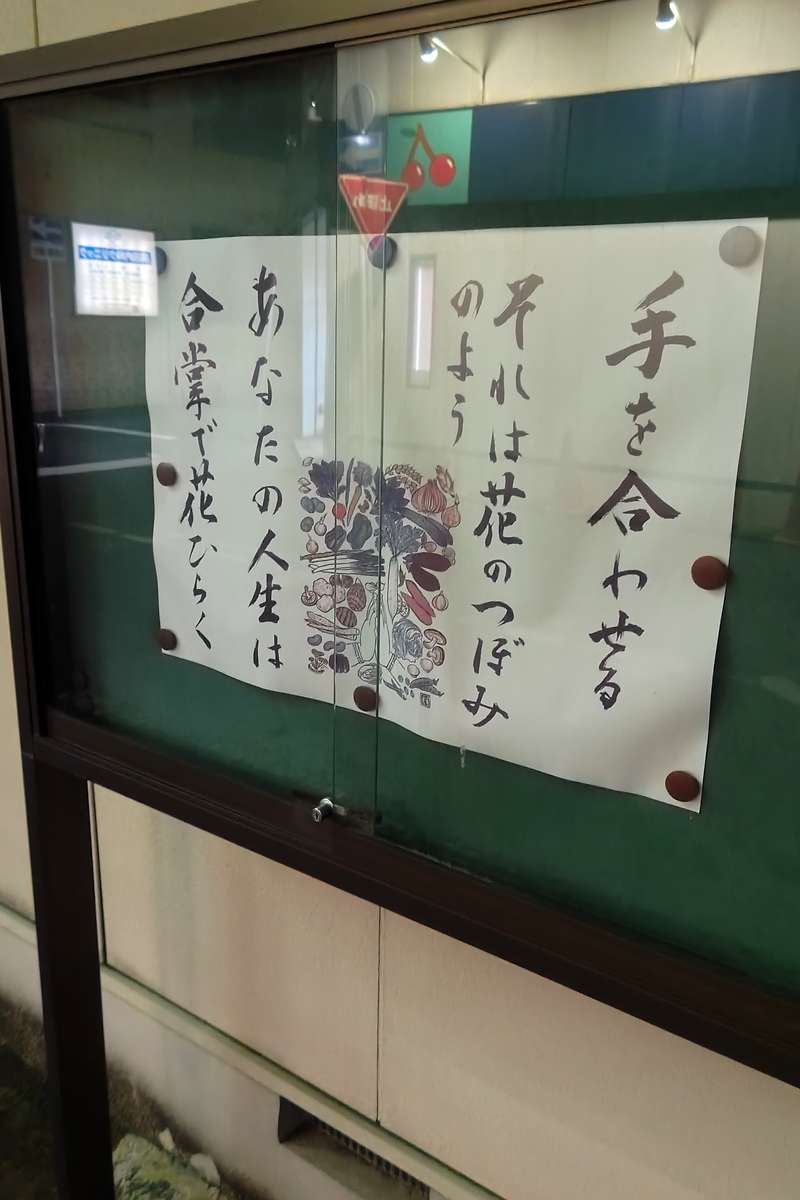 手を合わせる
それは花のつぼみ
のよう
あなたの人生は
合掌で花ひらく